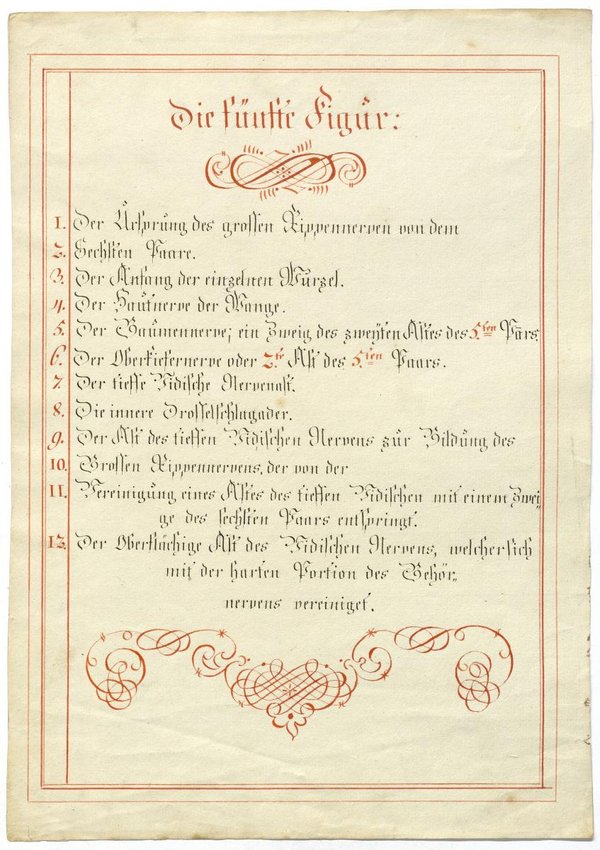 Die fünfte Figur:
1. Der Ursprung des grossen Rippennerven von dem
2. Sechsten Paare.
3. Der Anfang der einzelnen Wurzel.
4. Der Hautnerve der Wange.
5. Der Gaumennerve; ein Zweig des zweyten Astes des 5.ten Pars.
6. Der Oberkiefernerve oder 2.te Ast des 5.ten Paars.
7. Der tieffe Vidische Nervenast.
8. Die innere Drosselschlagader.
9. Der Ast des tieffen Vidischen Nervens zur Bildung des
10. Grossen Rippennervens, der von der
11. Vereinigung eines Astes des tieffen Vidischen mit einem Zwei„
ge des sechsten Paars entspringt.
12. Der Oberflächige Ast des Vidischen Nervens, welcher sich
mit der harten Portion des Gehör„
nervens vereiniget.